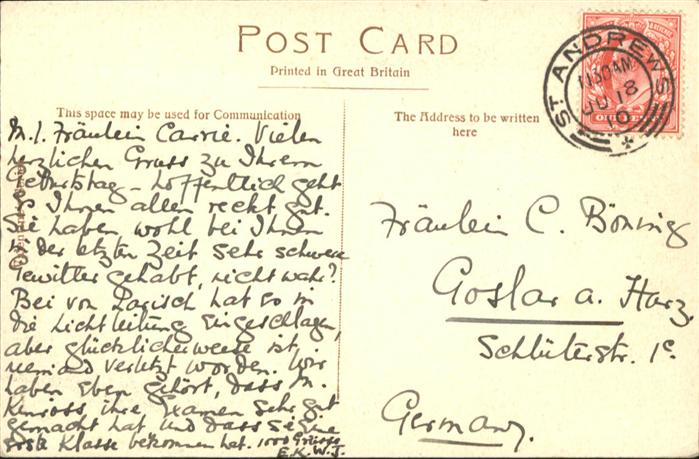 POST CARD
Printed in Great Britain
This space may be used for Communication
The Address to be written
here
ST. ANDREWS
11 30AM
JU 18
10
M. l. Fräulein Carrie. Vielen
herzlichen Gruss zu Ihrem
Geburtstag – hoffentlich geht
es Ihnen allen recht gut.
Sie haben wohl bei Ihnen
in der letzten Zeit sehr schwere
Gewitter gehabt, nicht wahr?
Bei von Parisch hat es in
die Lichtleitung eingeschlagen,
aber glücklicherweise ist
niemand verletzt worden. Wir
haben eben gehört, dass M.
Kinross ihre Examen sehr gut
gemacht hat und dass sie eine
erste Klasse bekommen hat. 1000 Grüsse
E.K.W.J.
Fräulein C. Böning
Goslar a. Harz
Schlüterstr. 1c.
Germany.